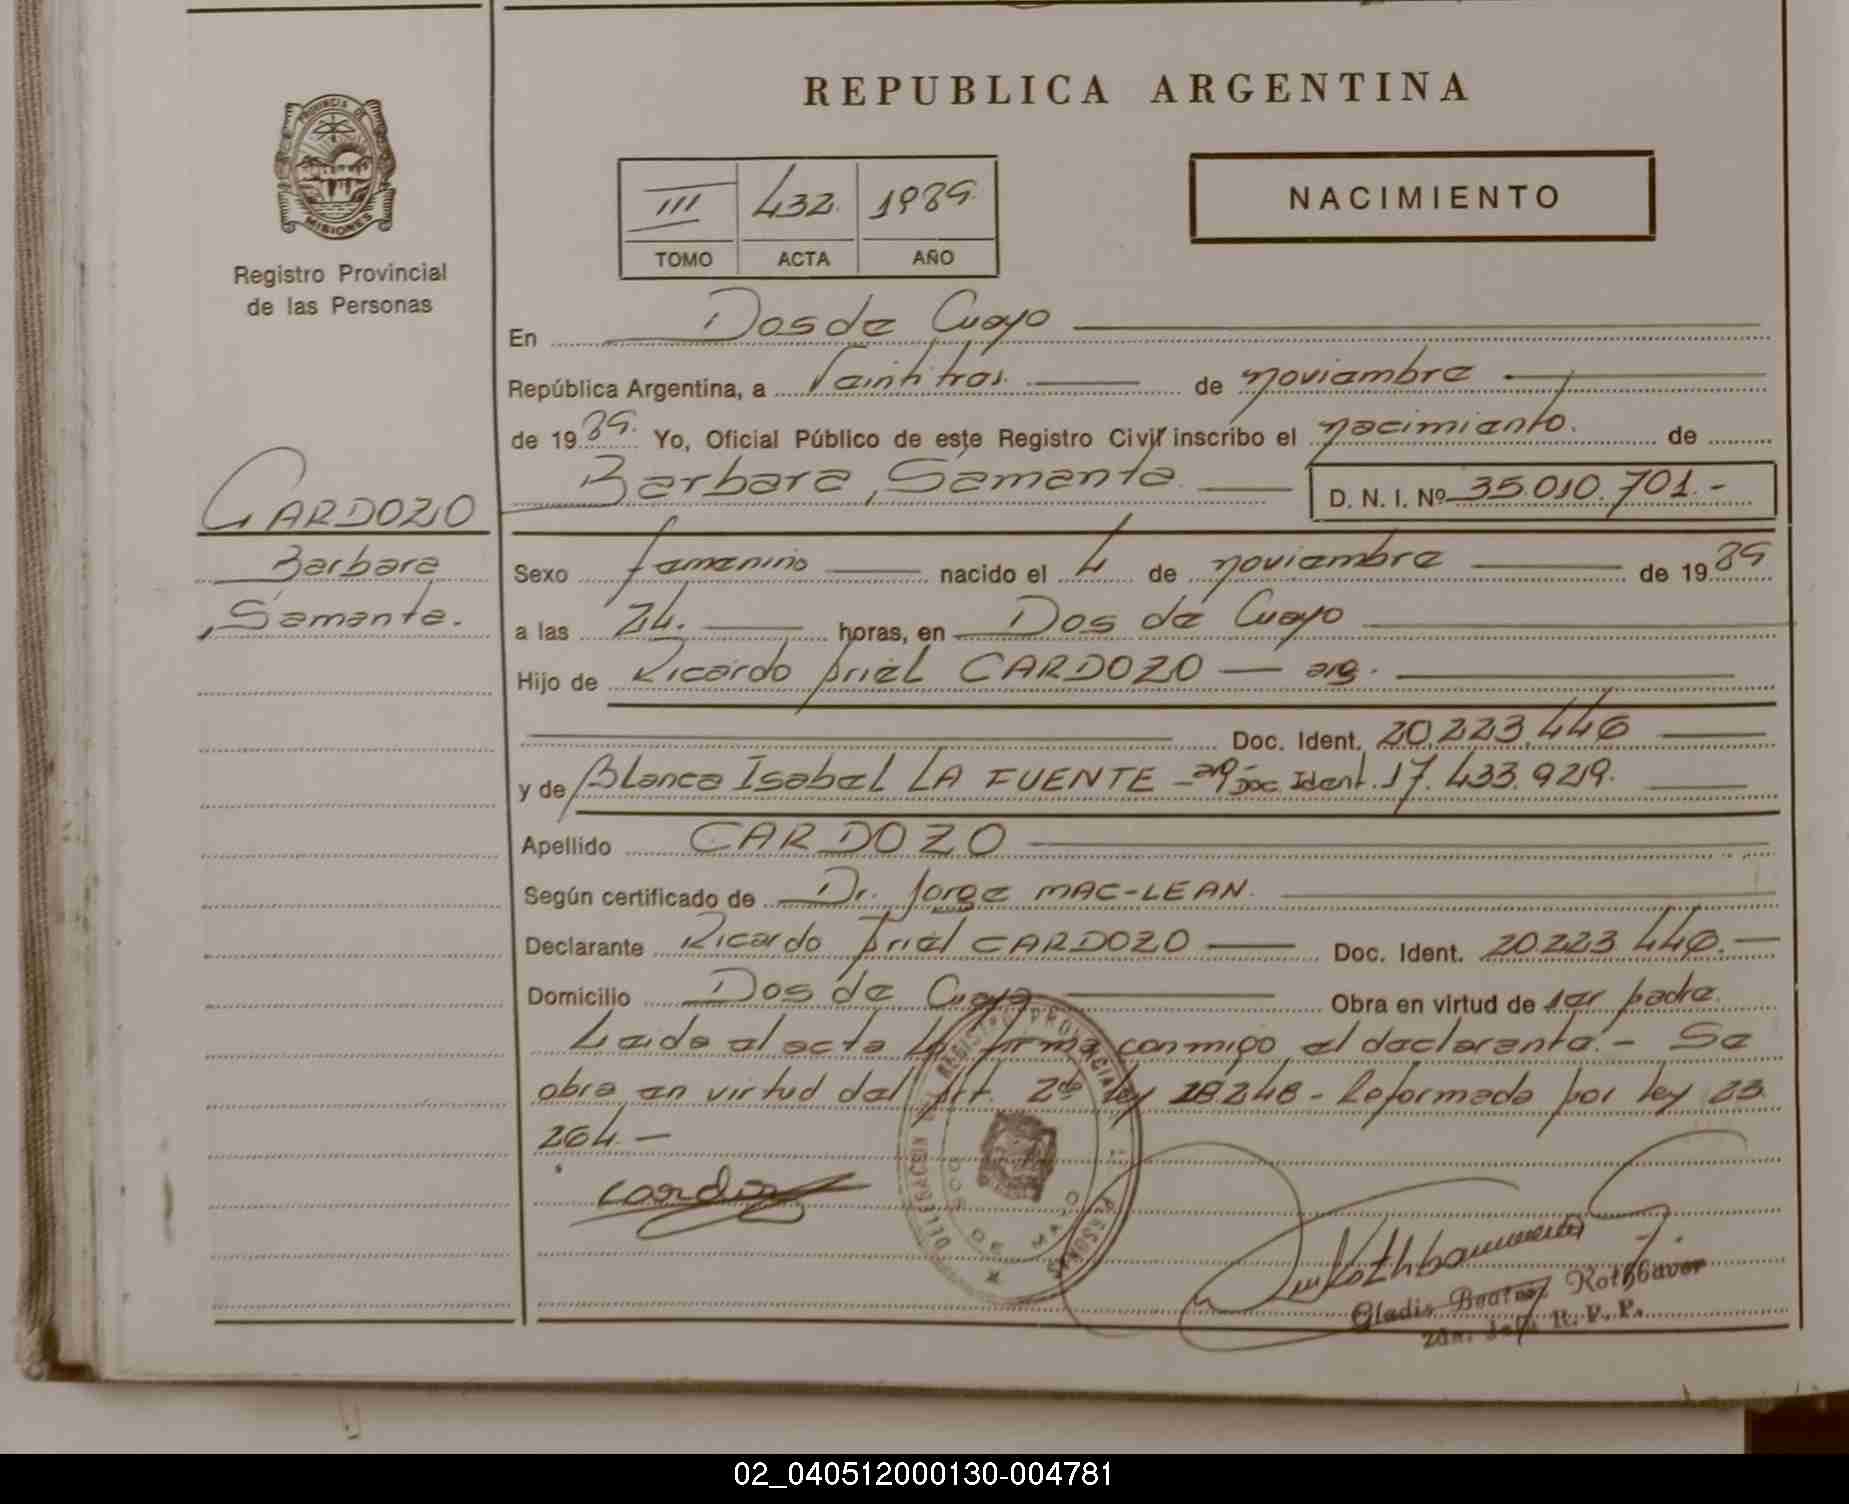 REPUBLICA ARGENTINA
PROVINCIA DE
MISIONES
Registro Provincial
de las Personas
III 432. 1989.
TOMO ACTA AÑO
NACIMIENTO
En Dos de Mayo
República Argentina, a Veintitres. de noviembre
de 1989. Yo, Oficial Público de este Registro Civil inscribo el nacimiento. de
Barbara, Samanta D. N. I. Nº 35.010.701.-
CARDOZO
Barbara
, Samanta.
Sexo femenino nacido el 4 de noviembre de 1989
a las 24. horas, en Dos de Mayo
Hijo de Ricardo Ariel CARDOZO — arg.
Doc. Ident. 20.223.446
y de Blanca Isabel LA FUENTE - arg- Doc. Ident. 17.433.929.
Apellido CARDOZO
Según certificado de Dr. Jorge MAC-LEAN.
Declarante Ricardo Ariel CARDOZO Doc. Ident. 20.223.446.
Domicilio Dos de Mayo Obra en virtud de ser padre.
Leida el acta la firma conmigo el declarante.- Se
obra en virtud del Art. 2do ley 18.248 - Reformada por ley 23
264.-
DELEGACION DEL REGISTRO PROVINCIAL DE PERSONAS
DOS DE MAYO
Gladis Beatriz Rothbaver
R. P. P.
02_040512000130-004781